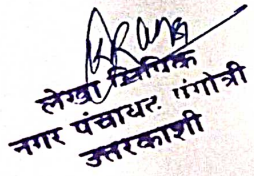 लेखा लिपिक
नगर पंचायत गंगोत्री
उत्तरकाशी